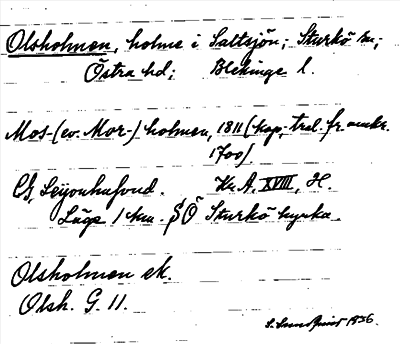 Olsholmen, holme i Saltsjön; Sturkö sn;
Östra hd; Blekinge l.
Mos- (ev. Mor-) holmen, 1811 (kop. trol. fr. omkr.
1700).
C. G. Leijonhufvud. Kr. A. XVIII, H.
Läge 1 km. SÖ Sturkö kyrka.
Olsholmen ek.
Olsh. G. 11.
S. Sundquist 1936